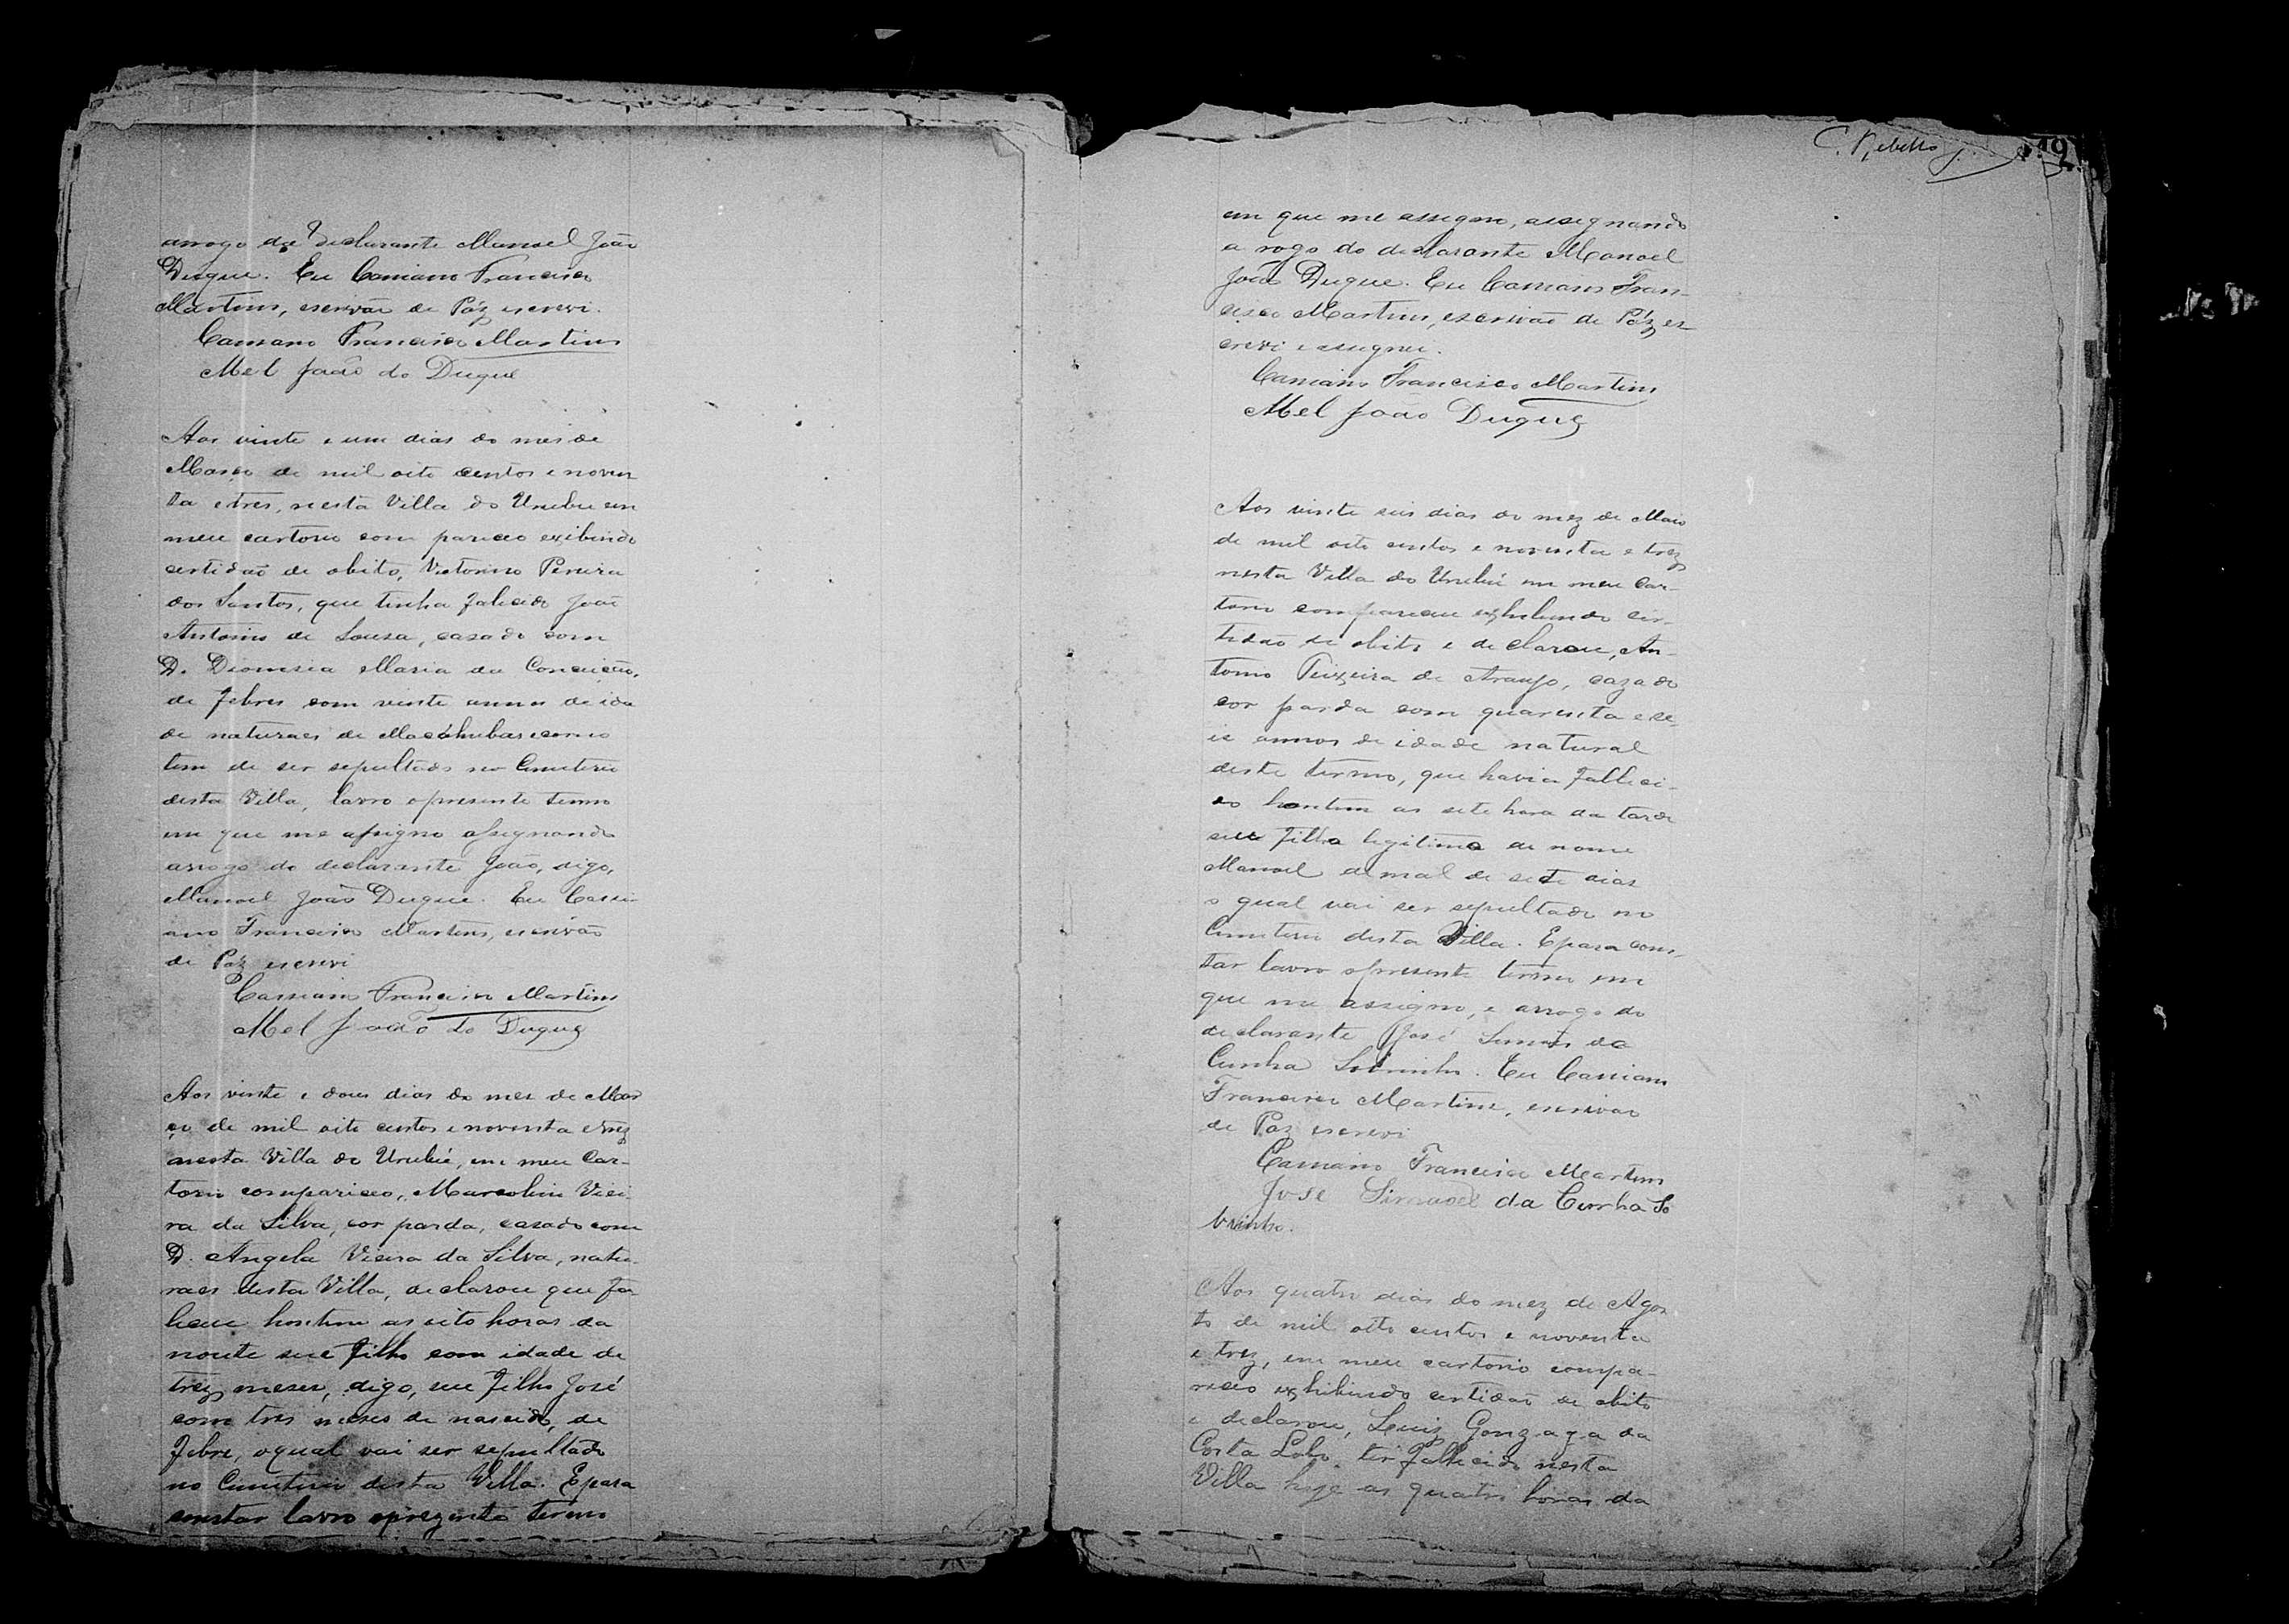 arrogo da Declarante Manoel João
Duque. Eu Cassiano Francisco
Martins, escrivão de Páz escrevi.
Cassiano Francisco Martins
Mel João do Duque
Aos vinte e um dias do mes de
Março de mil oito centos e noven
ta e tres, nesta Villa do Urubu em
meu cartorio com pareceo exibindo
certidão de obito, Victorino Pereira
dos Santos, que tinha falecido João
Antonio de Sousa, casado com
D. Dionisia Maria da Conceição,
de febres com vinte annos de ida
de naturaes de Macahubas e como
tem de ser sepultado no Cemeterio
desta Villa, lavro o presente termo
em que me assigno assignando
arrogo do declarante João, digo,
Manoel João Duque. Eu Cassi
ano Francisco Martins, escrivão
de Páz escrevi
Cassiano Francisco Martins
Mel João do Duque
Aos vinte e dous dias do mes de Mar
ço de mil oito centos e noventa e trez
nesta Villa do Urubú, em meu Car-
torio compareceo, Marcolino Viei
ra da Silva, cor parda, casado com
D. Angela Vieira da Silva, natu-
raes desta Villa, declarou que fa
leceu hontem as oito horas da
noute seu filho com idade de
trez meses, digo, seu filho José
com tres meses de nascido, de
febre, o qual vai ser sepultado
no Cemeterio desta Villa. E para
constar lavro o prezente termo
C. Rebello
19
em que me assigno, assignando
a rogo do declarante Manoel
João Duque. Eu Cassiano Fran-
cisco Martins, escrivão de Páz es-
crevi e assignei.
Cassiano Francisco Martins
Mel João Duque
Aos vinte seis dias do mez de Maio
de mil oito centos e noventa e trez
nesta Villa do Urubú em meu Car-
torio compareceu exhibindo cer-
tidão de obito e declarou, An-
tonio Teixeira de Araujo, cazado
cor parda com quarenta e se
is annos de idade natural
deste termo, que havia falleci-
do hontem as sete hora da tarde
seu filho legitimo de nome
Manoel de mal de sete dias
o qual vai ser sepultado no
Cemeterio desta Villa. E para cons-
tar lavro o presente termo em
que me assigno, e arrogo do
declarante José Simões da
Cunha Sobrinho. Eu Cassiano
Francisco Martins, escrivão
de Paz escrevi
Cassiano Francisco Martins
José Simões da Cunha So
brinho.
Aos quatro dias do mez de Agos
to de mil oito centos e noventa
e trez, em meu cartorio compa-
receo exhibindo certidão de obito
e declarou, Luiz Gonzaga da
Costa Lobo, ter fallecido nesta
Villa hoje as quatro horas da